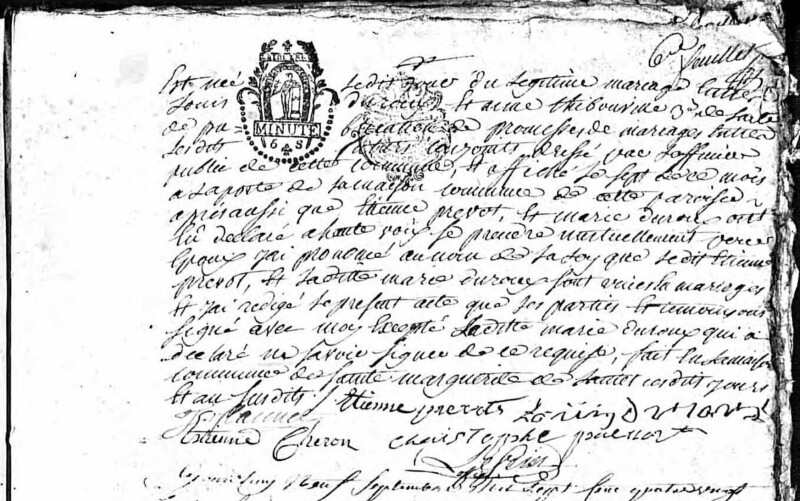 6e feuillet
Est née ledit jour du legitime mariage entre
Louis duroux Et anne thibour me 3° de l'acte
de pu- blication de promesses de mariages entre
lesdits futurs conjoints dressé par l'officier
public de cette commune, Et affiché le sept de ce mois
a la porte de la maison commune de cette paroisse
apres aussi que Etienne prevot, Et marie duroux ont
Eû declaré a haute voix se prendre mutuellement pour
Epoux j'ai prononcé au nom de la loy que ledit Etienne
prevot, Et ladite marie duroux sont unies en mariages
Et j'ai redigé le present acte que les parties Et temoins ont
signé avec moy Excepté ladite marie duroux qui a
declaré ne savoir signer de ce requise, fait En la maison
commune de sainte marguerite de lesdits jours
Et an susdits. Etienne prevots
Etienne Cheron christopphe
MINUTE
6 S
neuf septembre mil sept Cent quatre vingt